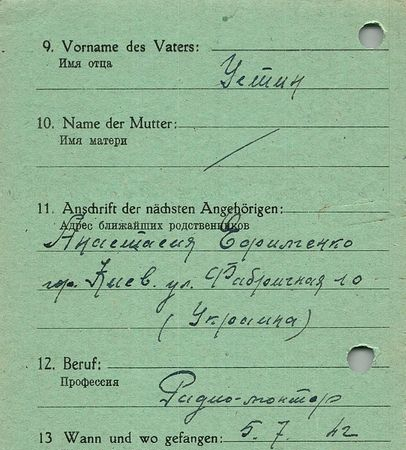 9. Vorname des Vaters:
Имя отца
Устин
10. Name der Mutter:
Имя матери
/
11. Anschrift der nächsten Angehörigen:
Адрес ближайших родственников
Анастасия
гор. Киев. ул. Фабричная 10
(Украина)
12. Beruf:
Профессия
Радио-монтор
13 Wann und wo gefangen: 5. 7. 42